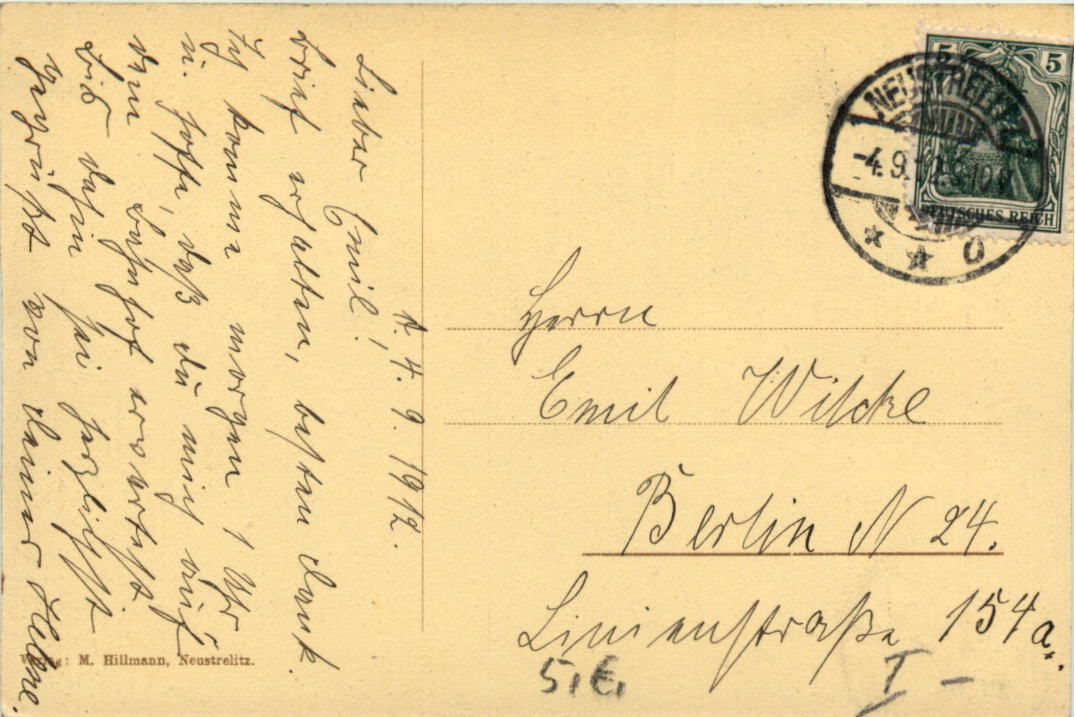 d. 4. 9. 1912.
Lieber Emil!
Brief erhalten, besten Dank.
Ich komme morgen 1 Uhr
u. hoffe, daß du mich auf
dem Bahnhof erwartest
Bis dahin sei herzlichst
gegrüßt von deiner Helene.
Verlag: M. Hillmann, Neustrelitz.
5 5
DEUTSCHES REICH
NEUSTRELITZ
-4.9.12.
* * c
Herrn
Emil Wilcke
Berlin N 24.
Linienstraße 154a.
5,€,
I –